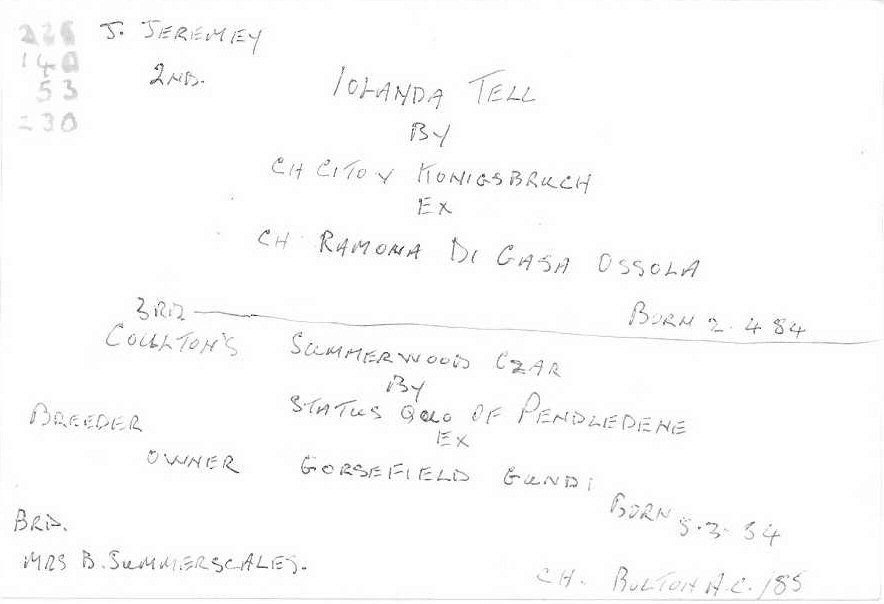 226
140
53
230
J. JEREMEY
2ND.
IOLANDA TELL
BY
CH CITO V KONIGSBRUCH
EX
CH RAMONA DI CASA OSSOLA
BORN 2.4 84
3RD
COULTON'S SUMMERWOOD CZAR
BY
STATUS QUO OF PENDLEDENE
EX
BREEDER
OWNER GORSEFIELD GUNDI
BORN 5.3. 84
BRD.
MRS B. SUMMERSCALES.
CH. BOLTON A.C. /85